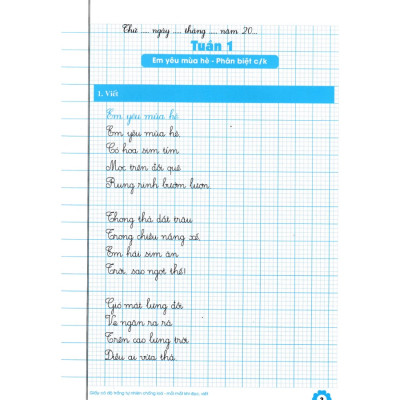 Thứ .... ngày .... tháng .... năm 20...
Tuần 1
Em yêu mùa hè - Phân biệt c/k
1. Viết
Em yêu mùa hè
Em yêu mùa hè
Có hoa sim tím
Mọc trên đồi quê
Rung rinh bướm lượn.
Thong thả dắt trâu
Trong chiều nắng xế
Em hái sim ăn
Trời, sao ngọt thế!
Gió mát lưng đồi
Ve ngân ra rả
Trên cao lưng trời
Diều ai vừa thả.